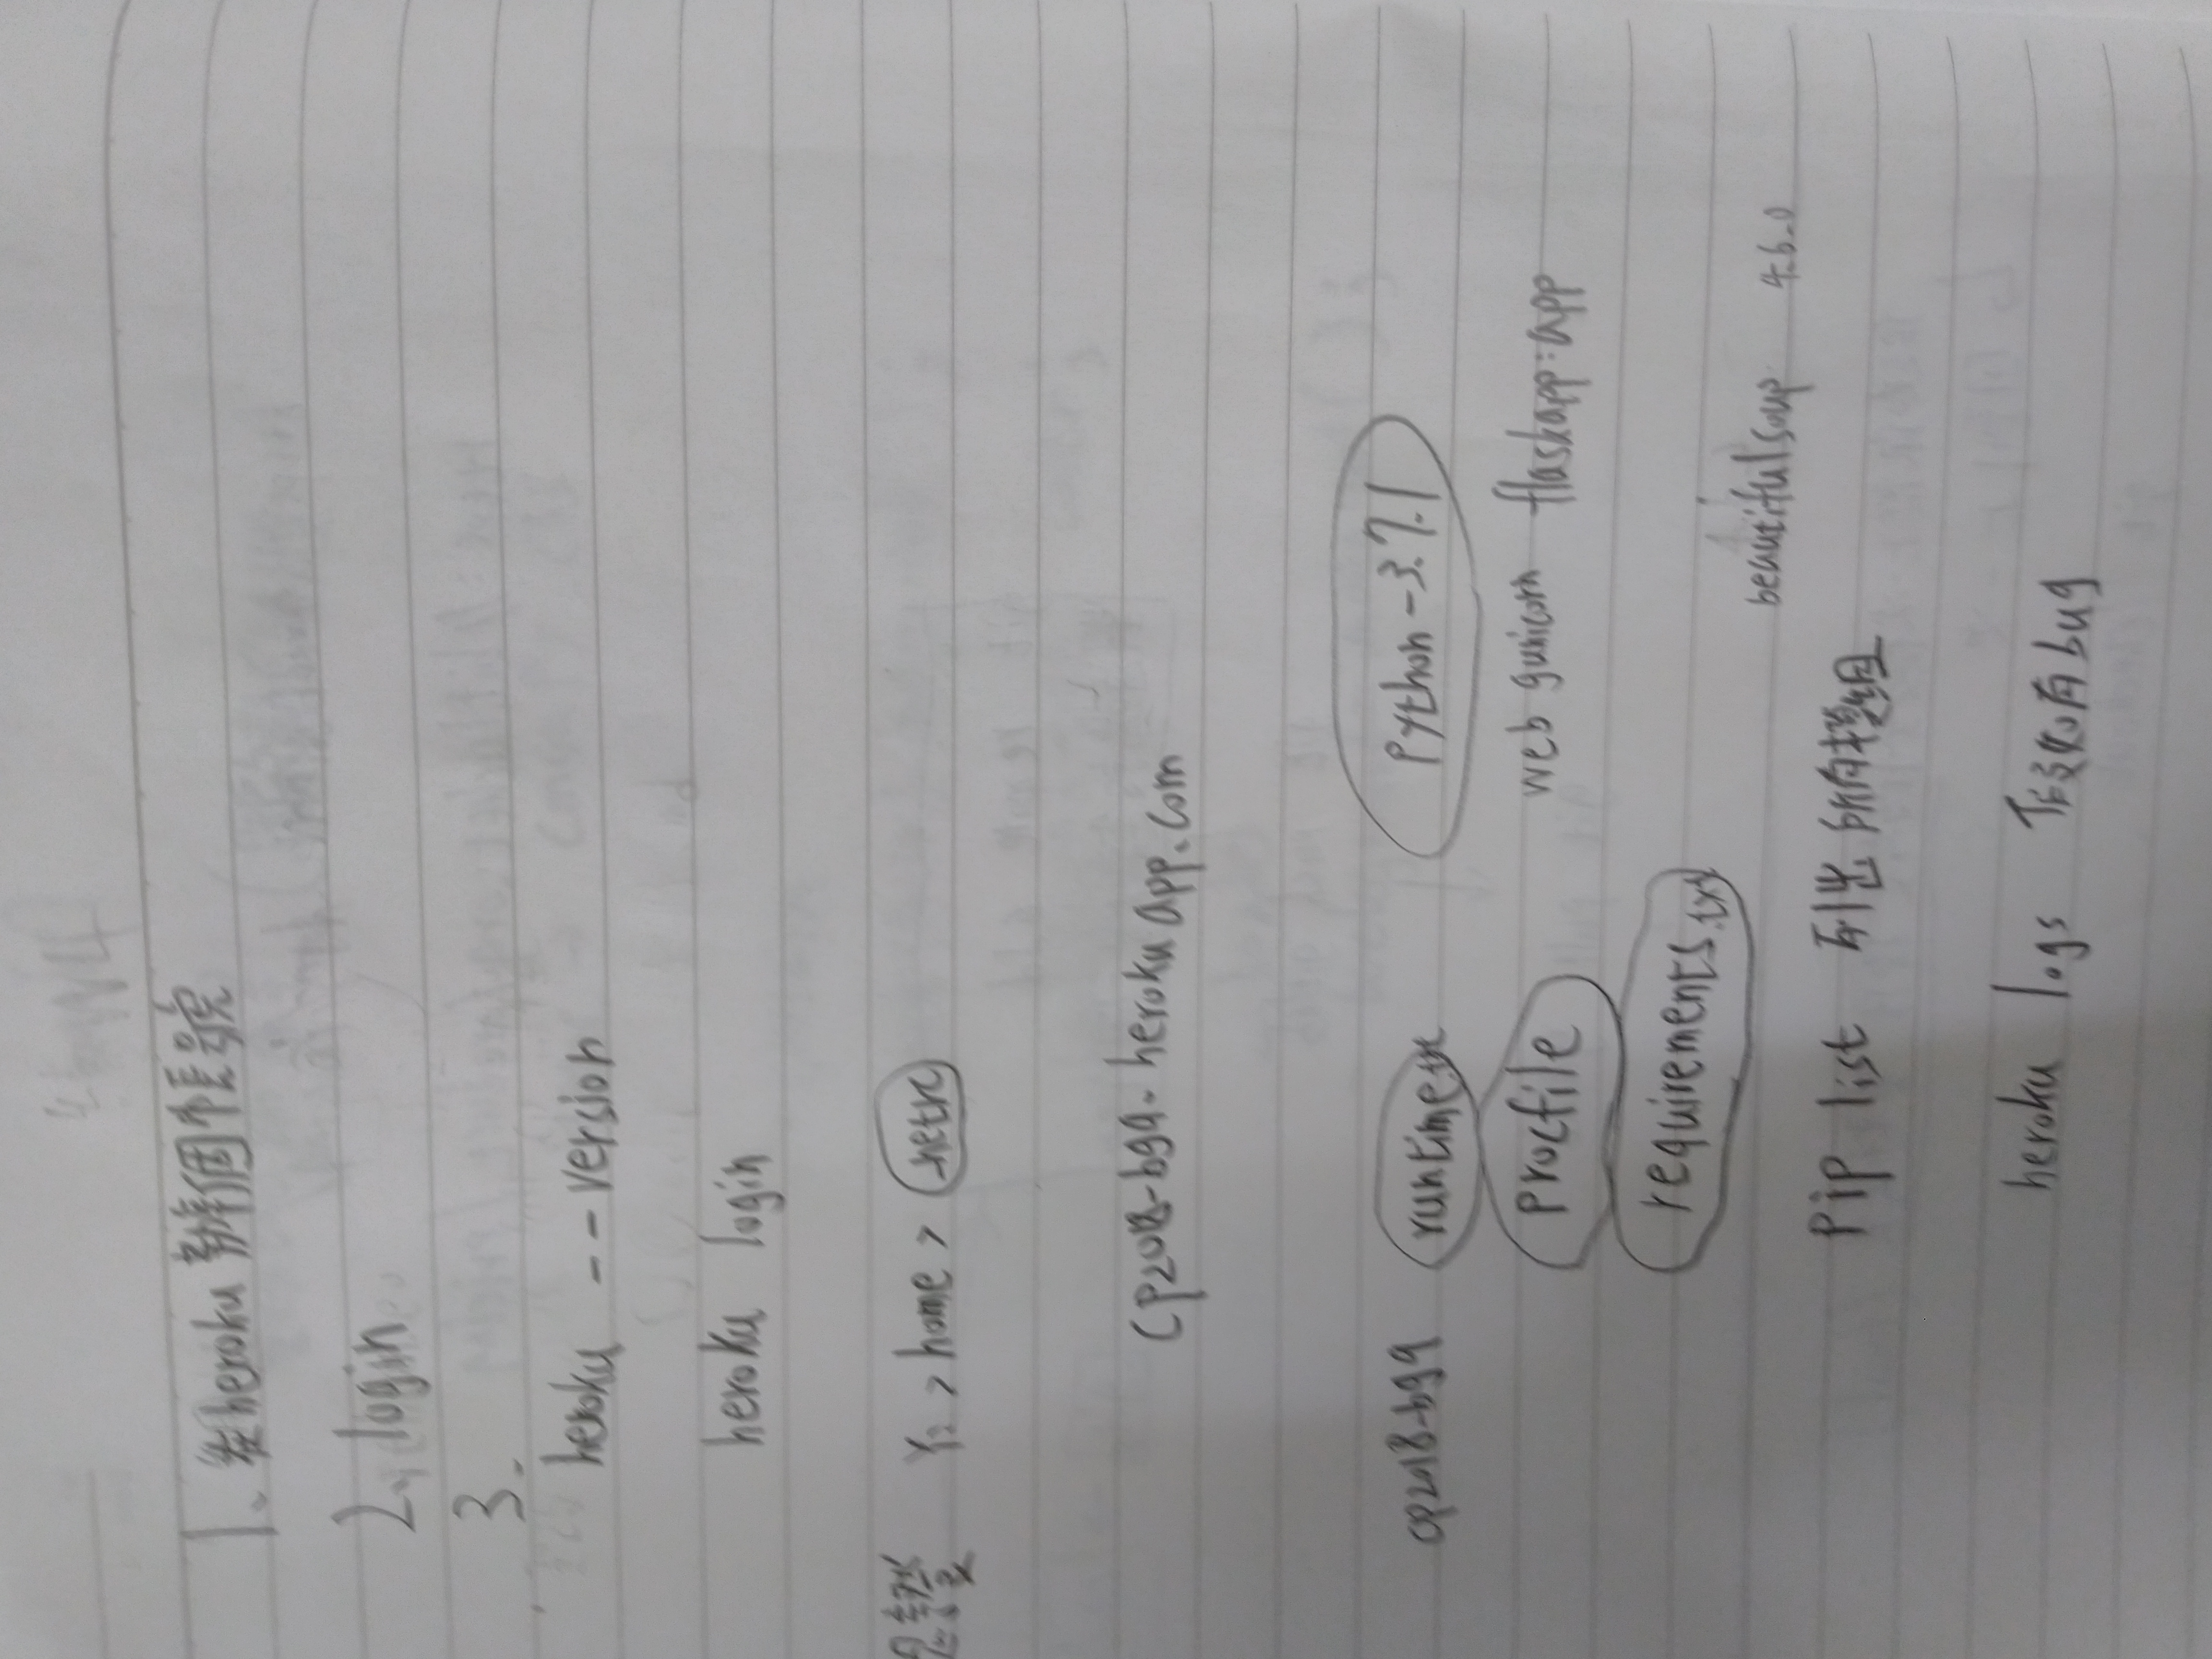 1、在heroku 辦個帳號
2、login
3.
heroku --version
heroku login
忘掉 Y: > home > _netrc
cp2018-bg9.herokuapp.com
cp2018-bg9 runtime.txt python-3.7.1
procfile web gunicorn flaskapp:app
requirements.txt
beautifulsoup 4.6.0
Pip list 列出所有模組
heroku logs 假如有bug